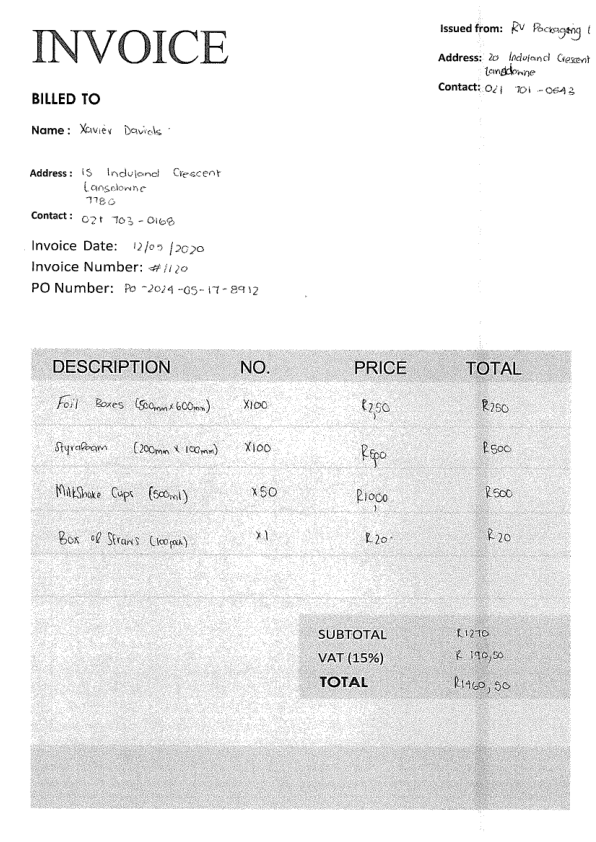 INVOICE
Issued from: RV Packaging
Address: 20 Induland Crescent
Lansdowne
Contact: 021 701-0643
BILLED TO
Name: Xavier Davids
Address: 15 Induland Crescent
Lansdowne
7780
Contact: 021 703-0168
Invoice Date: 12/05/2020
Invoice Number: #1120
PO Number: Po-2024-05-17-8912
DESCRIPTION NO. PRICE TOTAL
Foil Boxes (500mm x 600mm) x100 R2,50 R250
Styrafoam (200mm x 100mm) x100 R500 R500
MilkShake Cups (500ml) x50 R1000 R500
Box of Straws (100pack) x1 R20 R20
SUBTOTAL R1270
VAT (15%) R 190,50
TOTAL R1460,50